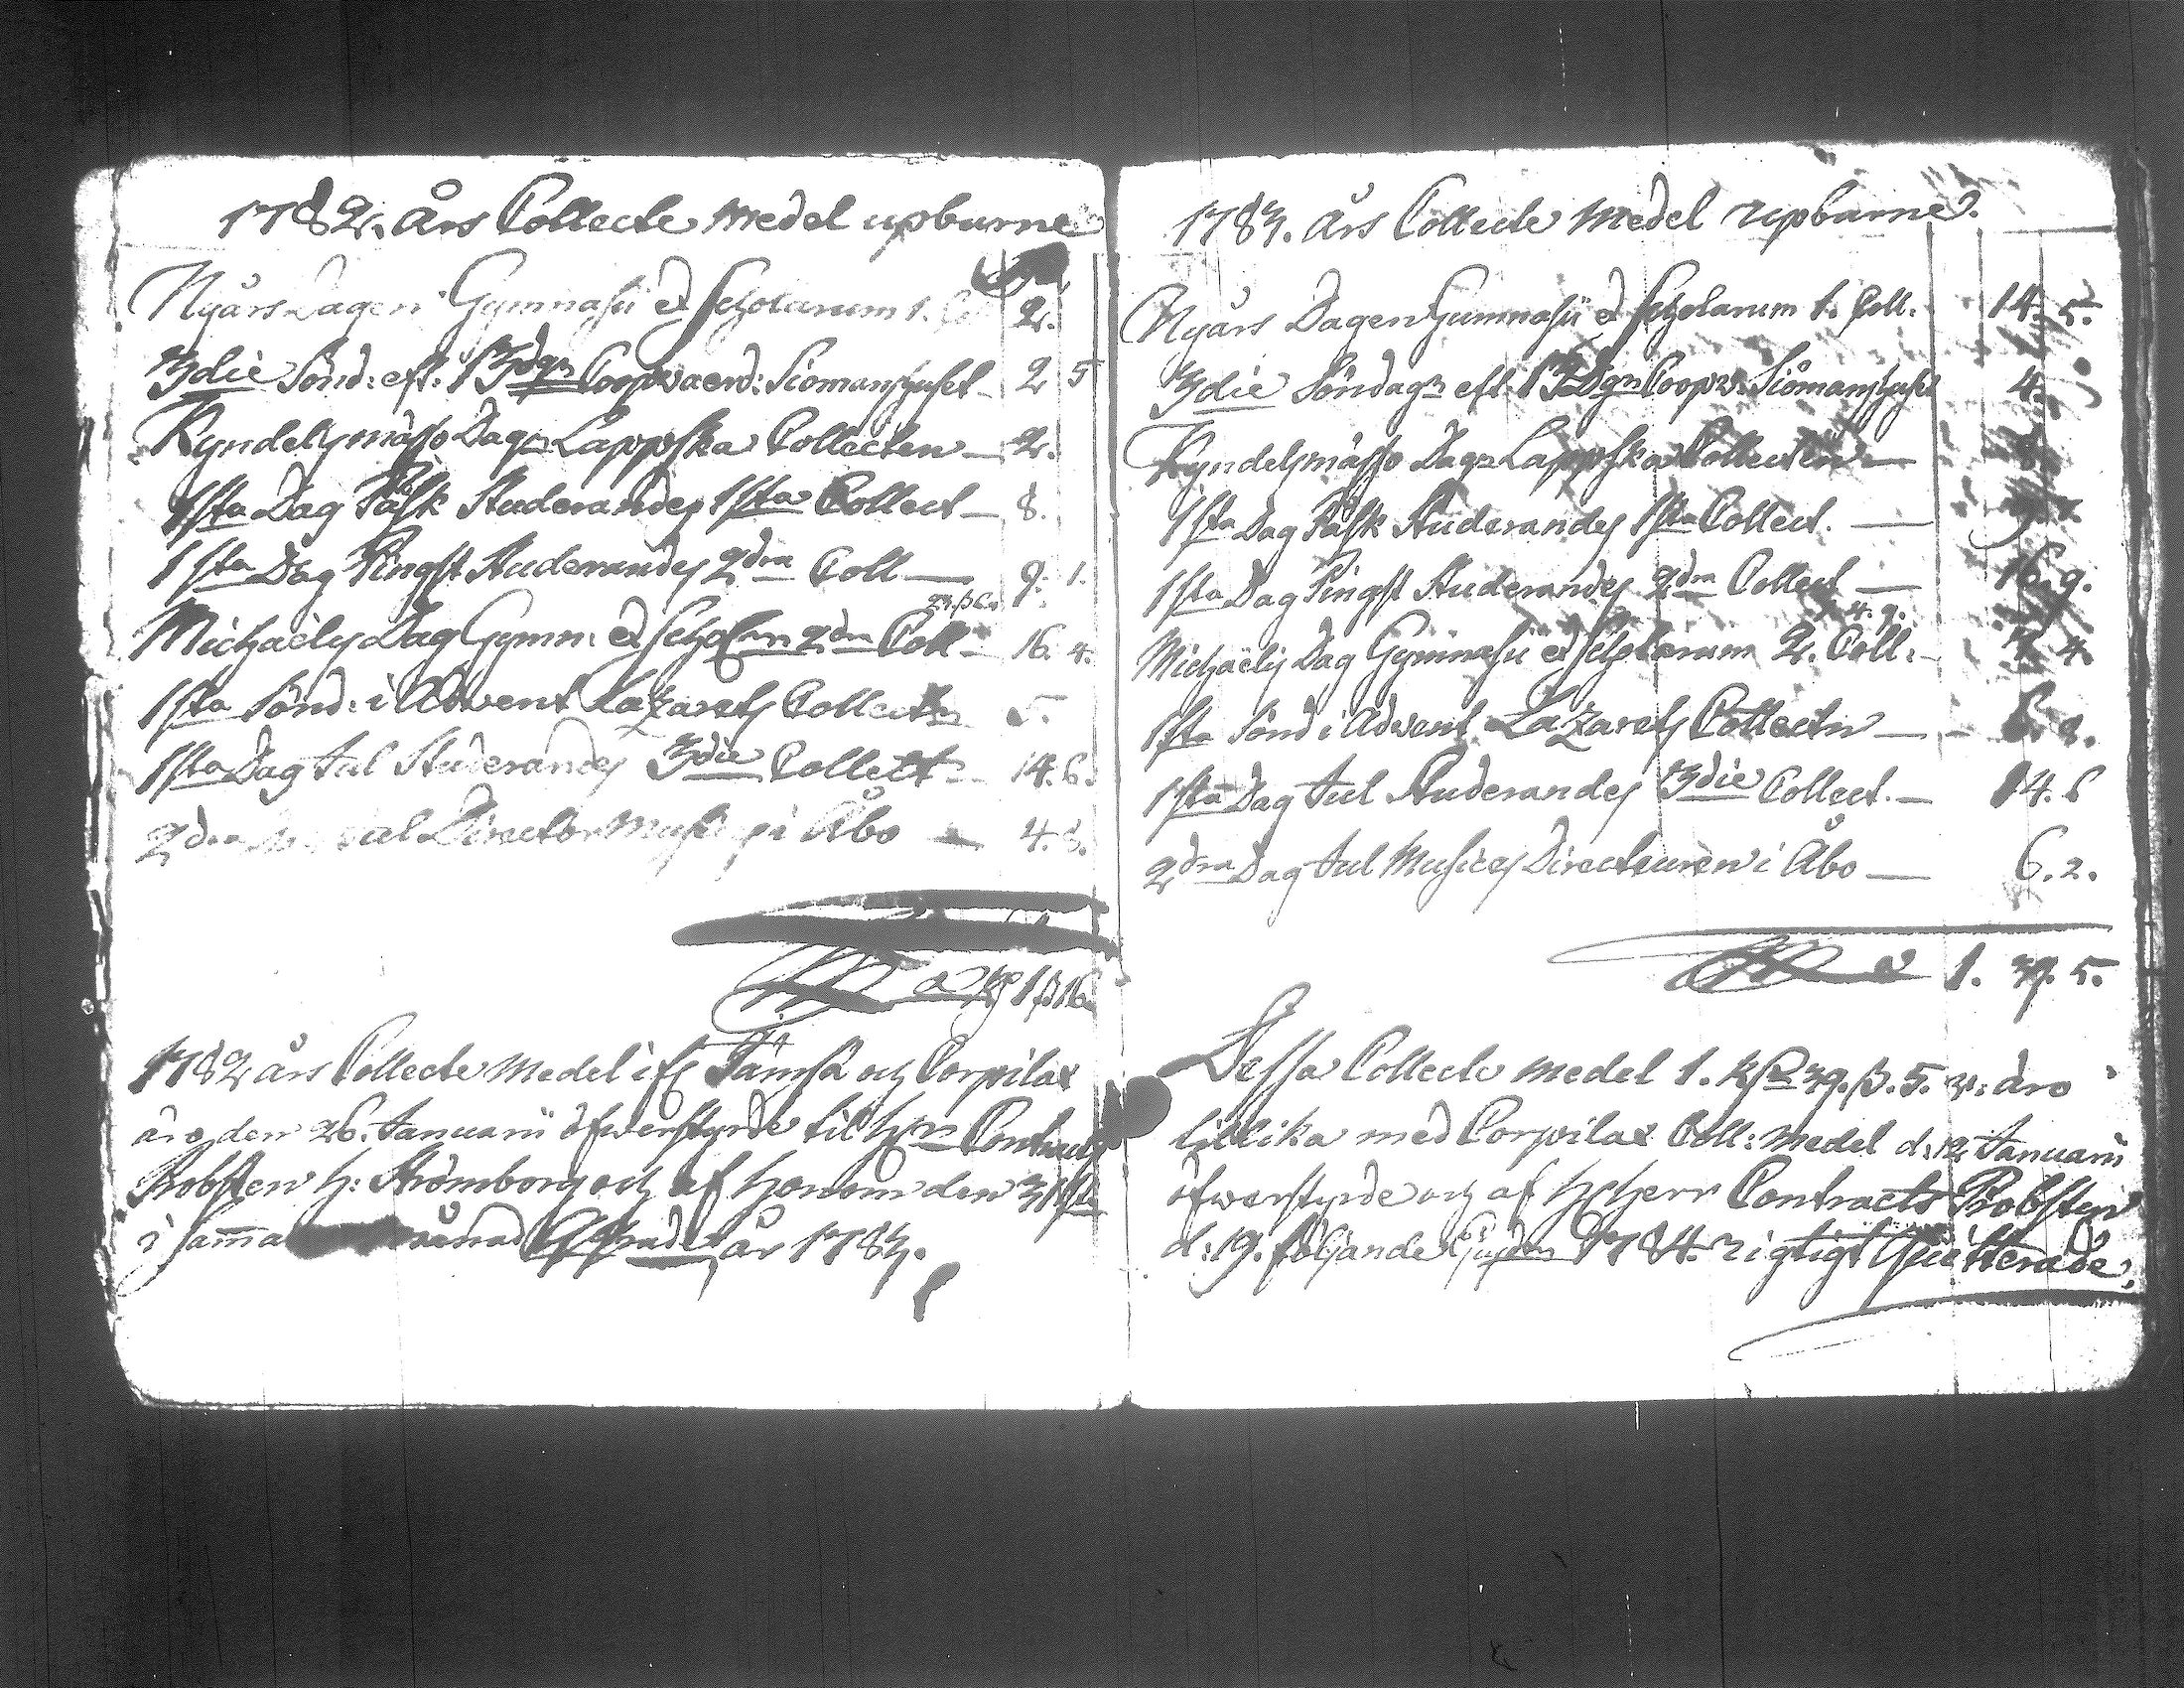 1782. års Collecte medel upburne
Nyårs Dagen Gymnasii et Scholarum 1. 2.
3die Sönd: eft: 13dgn Coopvaerd: Siömanshuset 2 5
Kyndelsmässo Dagn Lappska Collecten 2.
1sta Dag Påsk Studerandes 1sta Collect 8.
1sta Dag Pingst Studerandes 2dra Coll 9. 1.
Michaëlis Dag Gymn: et Scholrn 2dra Coll 16. 4.
1sta Sönd: i Advent Lazarets Collectn 5.
1sta Dag Jul Studerandes 3die Collect 14. 6.
2dra Jul Director Musices i Åbo 4. 8.
1 16
1782 års Collecte Medel ifr Jämsä och Corpilax
äro den 26. Januarii öfwerstyrde til Hrn Contracts
Probsten H: Strömborg och af honom den 31sta
i samma månad år 1783.
1783. års Collecte Medel upburne.
Nyårs Dagen Gymnasii et Scholarum 1. Coll. 14. 5.
3die Söndagn eft 13Dgn Coopv. Siömanshuset 4.
Kyndelsmässo Dagn Lappska Collecten
1sta Dag Påsk Studerandes 1sta Collect.
1sta Dag Pingst Studerandes 2dra Collect 16. 9.
4. 9.
Michaëlis Dag Gymnasii et Scholarum 2. Coll. 4.
1sta Sönd i Advent Lazarets Collectn
1sta Dag Jul Studerandes 3die Collect. 14. 6
2dra Dag Jul Musices Directeuren i Åbo 6. 2.
1. 39. 5.
Dessa Collecte medel 1. 39. β. 5. äro
tillika med Corpilax Coll: medel d. 12 Januarii
öfwerstyrde och af HcHerr Contracts Probsten
d: 19. följande 1784. rigtigt Quitterade.